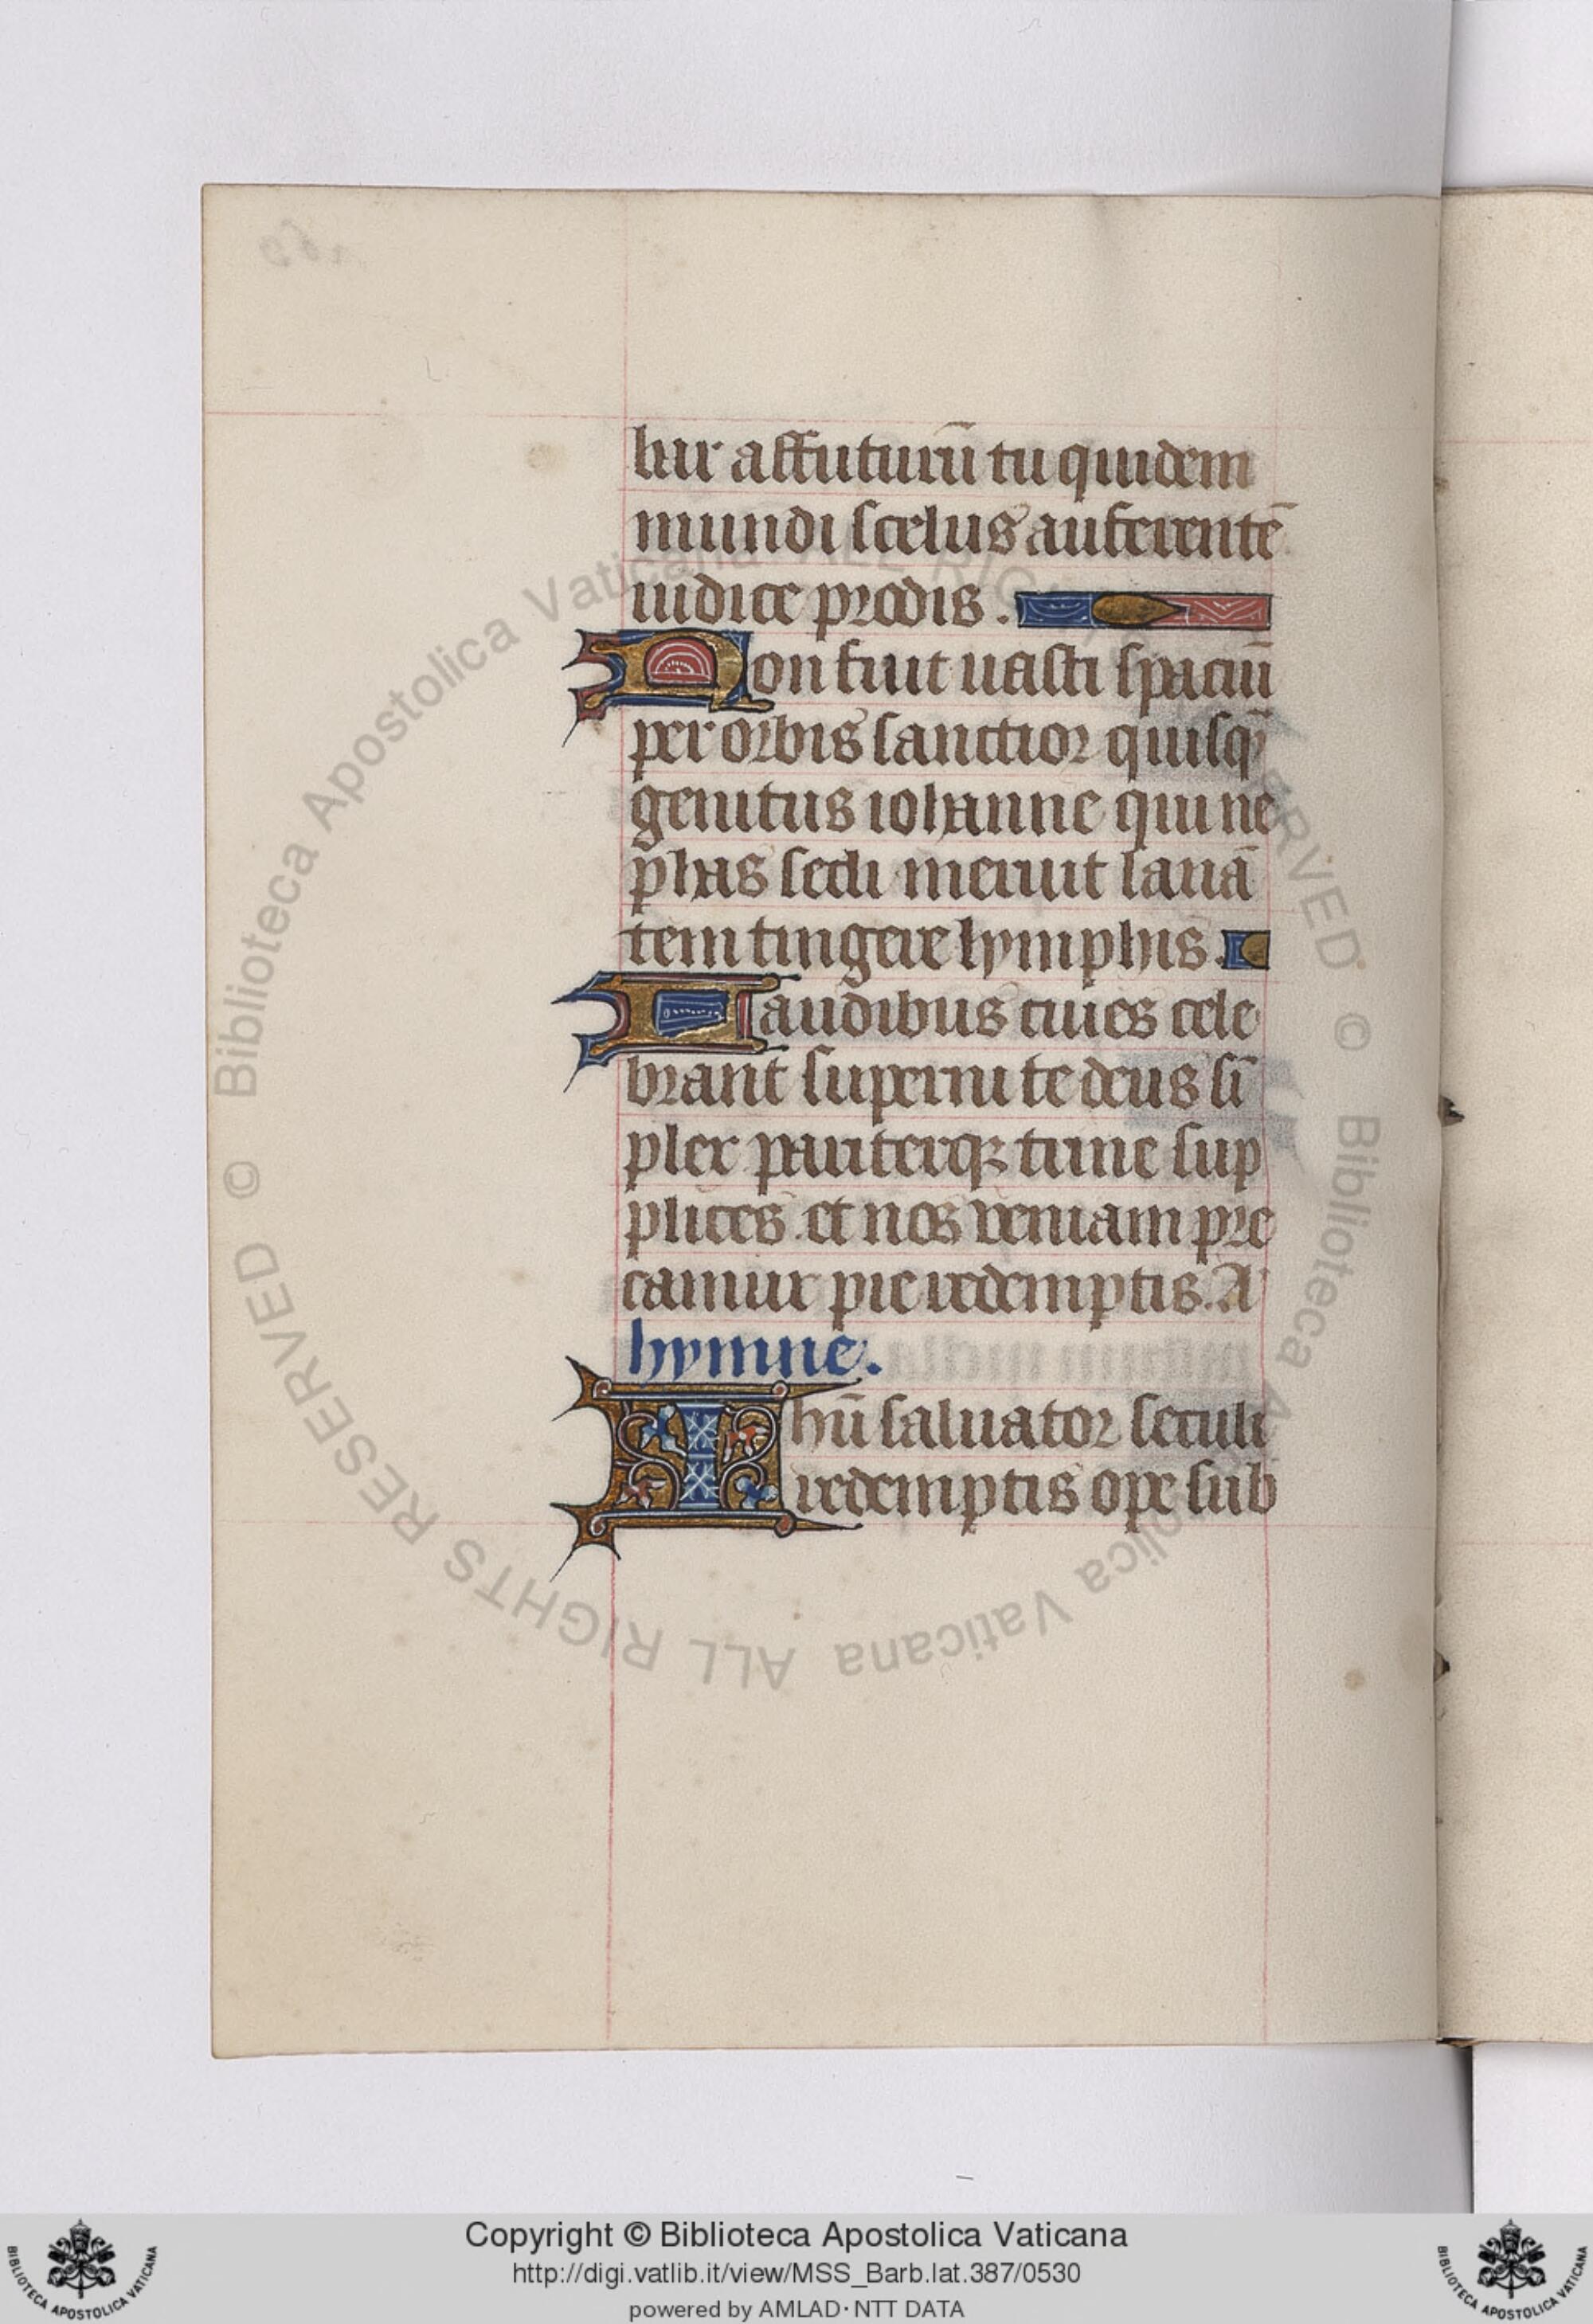 bar affuturū tu quidem
mundi scelus auferentē
iudice prodis.
Non fuit uasti spaciū
per orbis sanctior quisq̄
genitus iohanne qui ne
phas secli meruit lauā
tem tingere lymphis.
Laudibus ciues cele
brant superni te deus si
plex pariterqȝ trine sup
plices et nos veniam pre
camur pie redemptis. A
hymne.
Ihū saluator seculi
redemptis ope sub
© Biblioteca Apostolica Vaticana ALL RIGHTS RESERVED
© Biblioteca Apostolica Vaticana ALL RIGHTS RESERVED
Copyright © Biblioteca Apostolica Vaticana
http://digi.vatlib.it/view/MSS_Barb.lat.387/0530
powered by AMLAD· NTT DATA
BIBLIOTECA APOSTOLICA VATICANA
BIBLIOTECA APOSTOLICA VATICANA